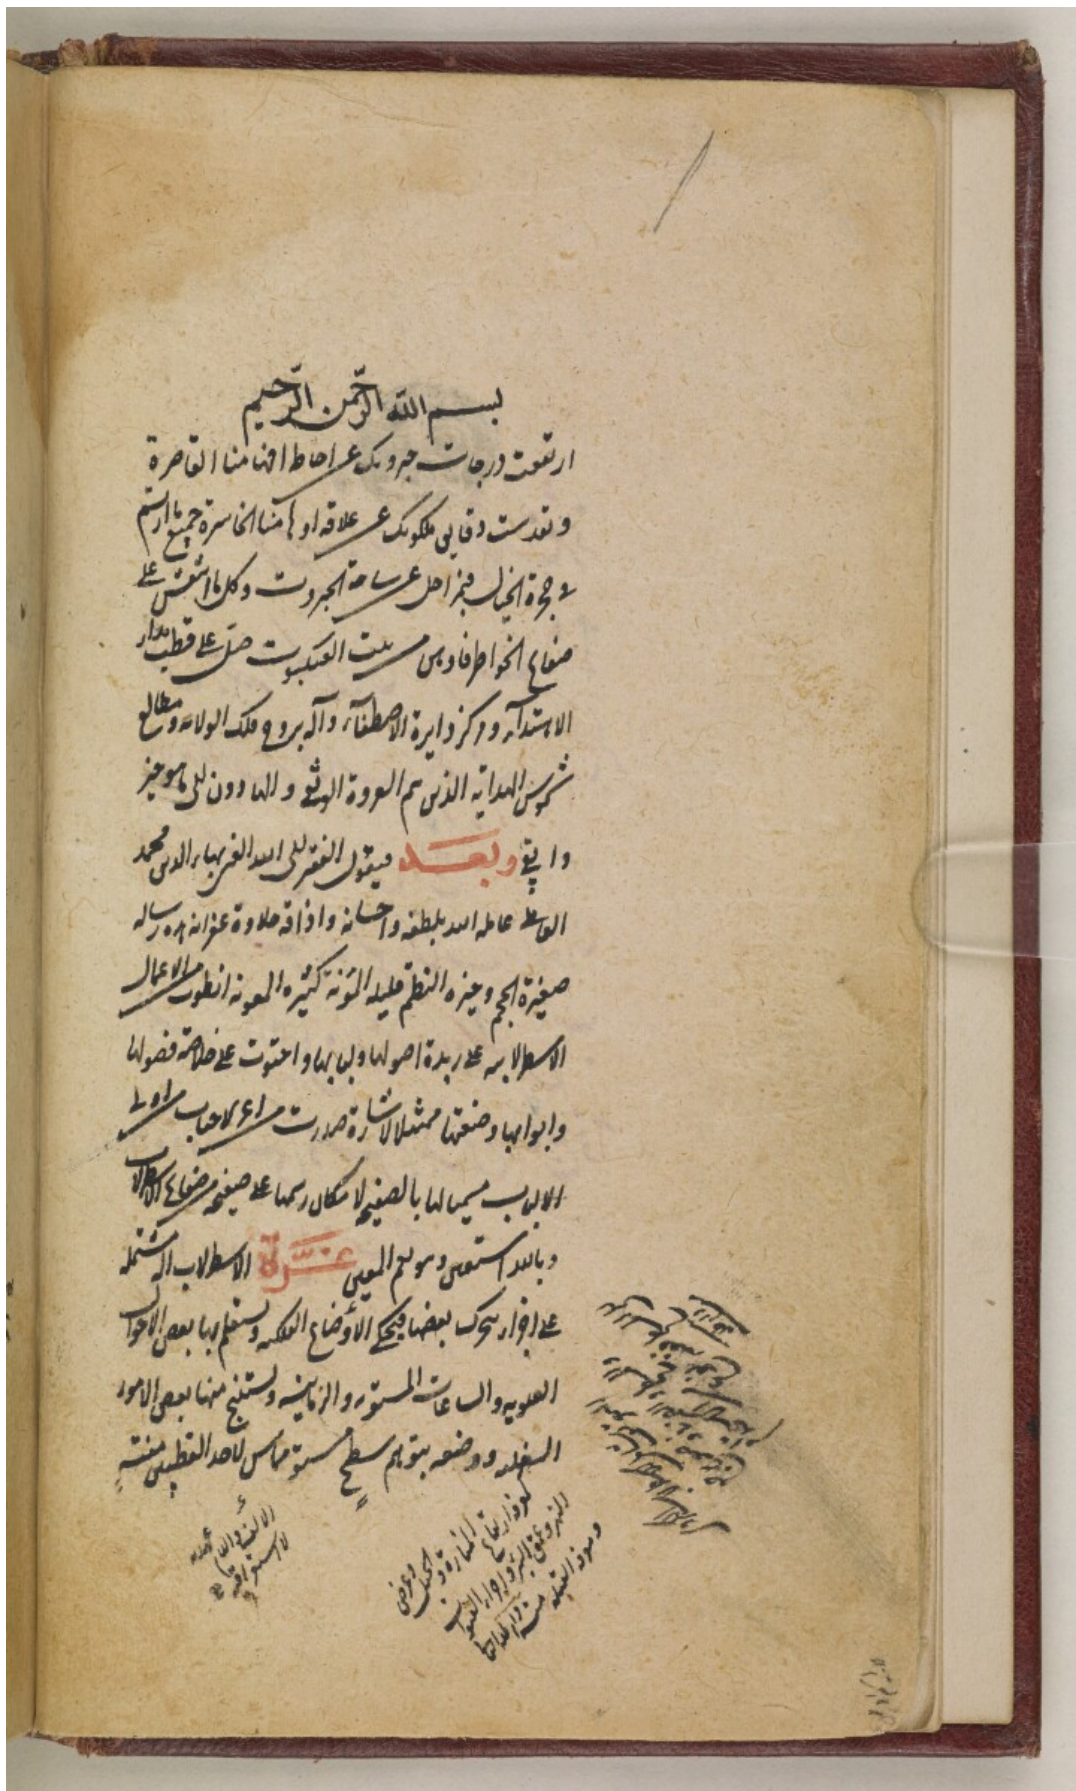 بسم الله الرحمن الرحيم
ارتفعت درجات جبروتك عن احاطة افهامنا القاصرة
وتقدست دقايق ملكوتك عن علاقة اوهامنا الخاسرة جميع ما ارتسم
في حجرة الخيال فبمراحل عن ساحة الجبروت وكل ما انتقش على
صفايح الخواطر فاوهن من بيت العنكبوت صل على قطب مدار
الاهتداء ومركز دايرة الاصطفآء وآله بروج فلك الولاية ومطالع
شموس الهداية الذين هم العروة الوثقى والهادون الى ما هو خير
وابقى وبعد فيقول الفقير الى الله الغني بهاء الدين محمد
العاملي عامله الله بلطفه واحسانه واذاقه حلاوة غفرانه هذه رساله
صغيرة الحجم وجيزه النظم قليله المؤنة كثيره المعونه انطوت من الاعمال
الاسطرلابيه على زبدة اصولها ولبابها واحتوت على خلاصة فصولها
وابوابها وضعتها ممتثلا لاشارة صدرت من اعز الاحباب من اولى
الالباب مسميا لها بالصفيحه لامكان رسمها على صفيحه من صفايح الاسطرلاب
وبالله استعين وهو نعم المعين غرّة الاسطرلاب آلة مشتمله
على اجزاء يتحرك بعضها فيحكى الأوضاع الفلكيه ويستعلم بها بعض الاحوال
العلويه والساعات المستويه والزمانيه ويستنتج منها بعض الامور
السفليه ووضعه بتوهم سطح مستو مماس لاحد القطبين منتهٍ